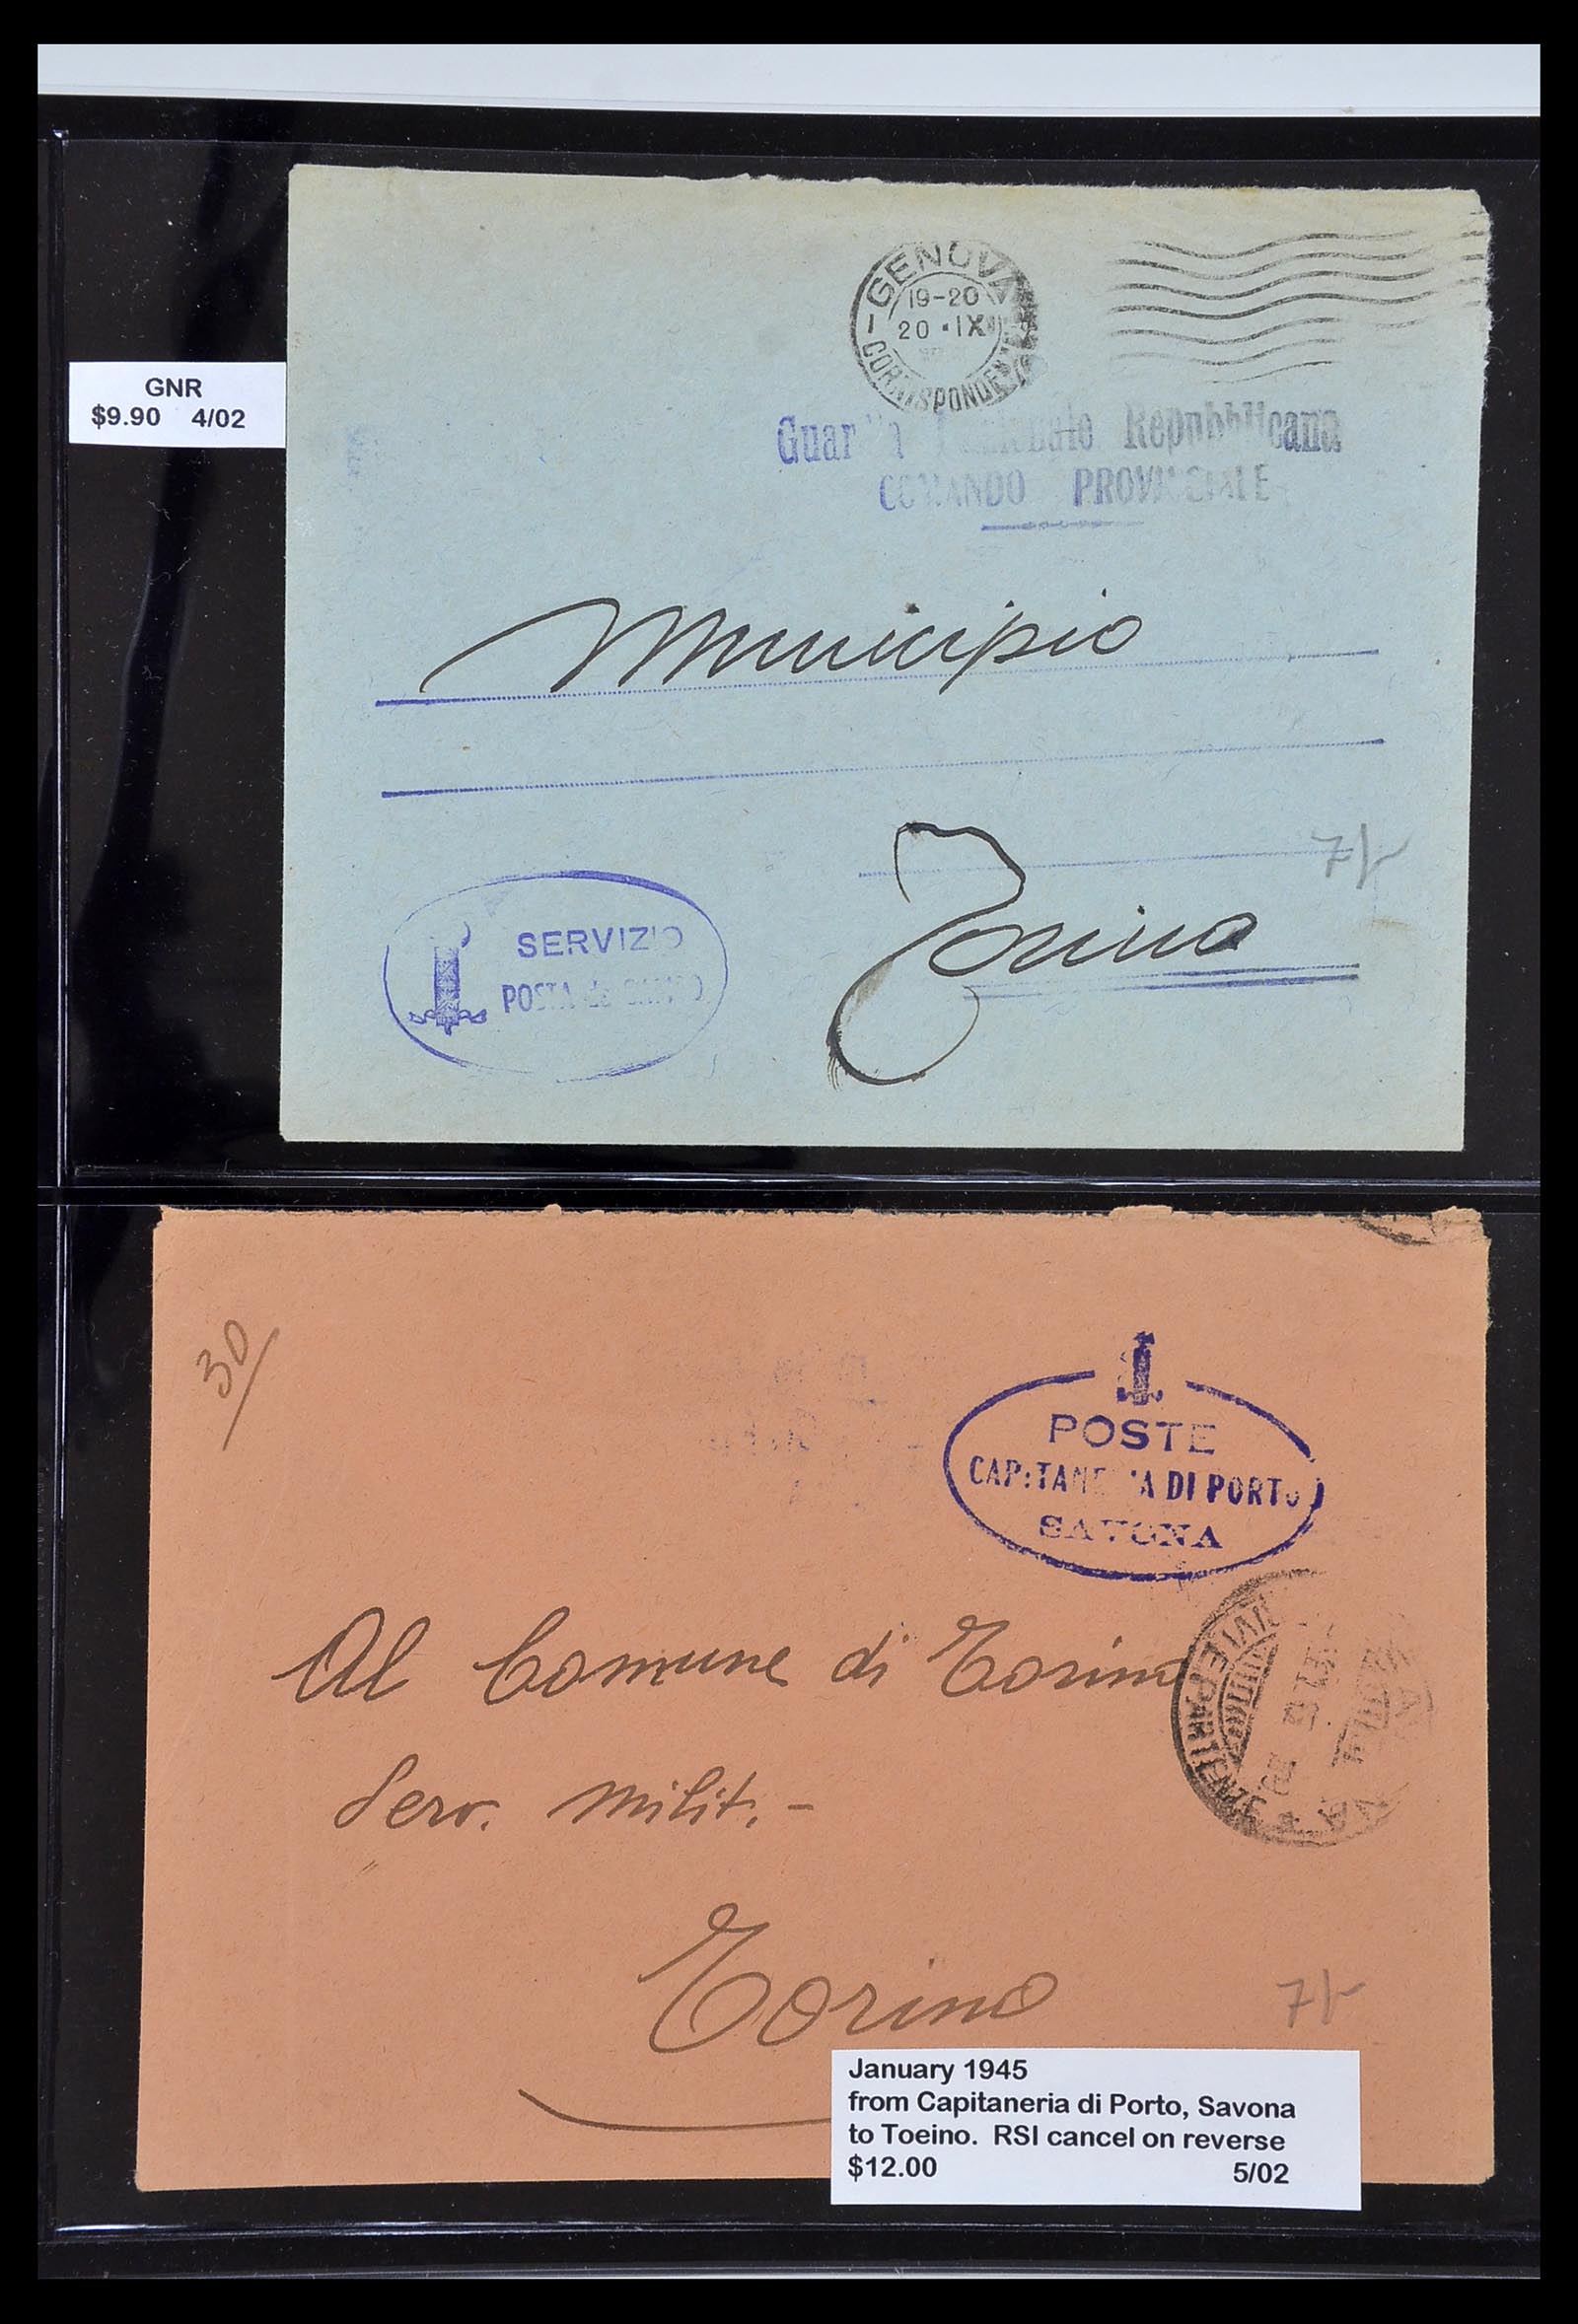 GENOVA
19-20
20 · IX
CORRISPONDENZE
GNR
$9.90 4/02
Guardia Nazionale Repubblicana
COMANDO PROVINCIALE
Municipio
7/-
Torino
SERVIZIO
POSTA da CAMPO
30/
POSTE
CAPITANERIA DI PORTO
SAVONA
Al Comune di Torino
Serv. Milit. -
Torino
7/-
January 1945
from Capitaneria di Porto, Savona
to Toeino. RSI cancel on reverse
$12.00 5/02